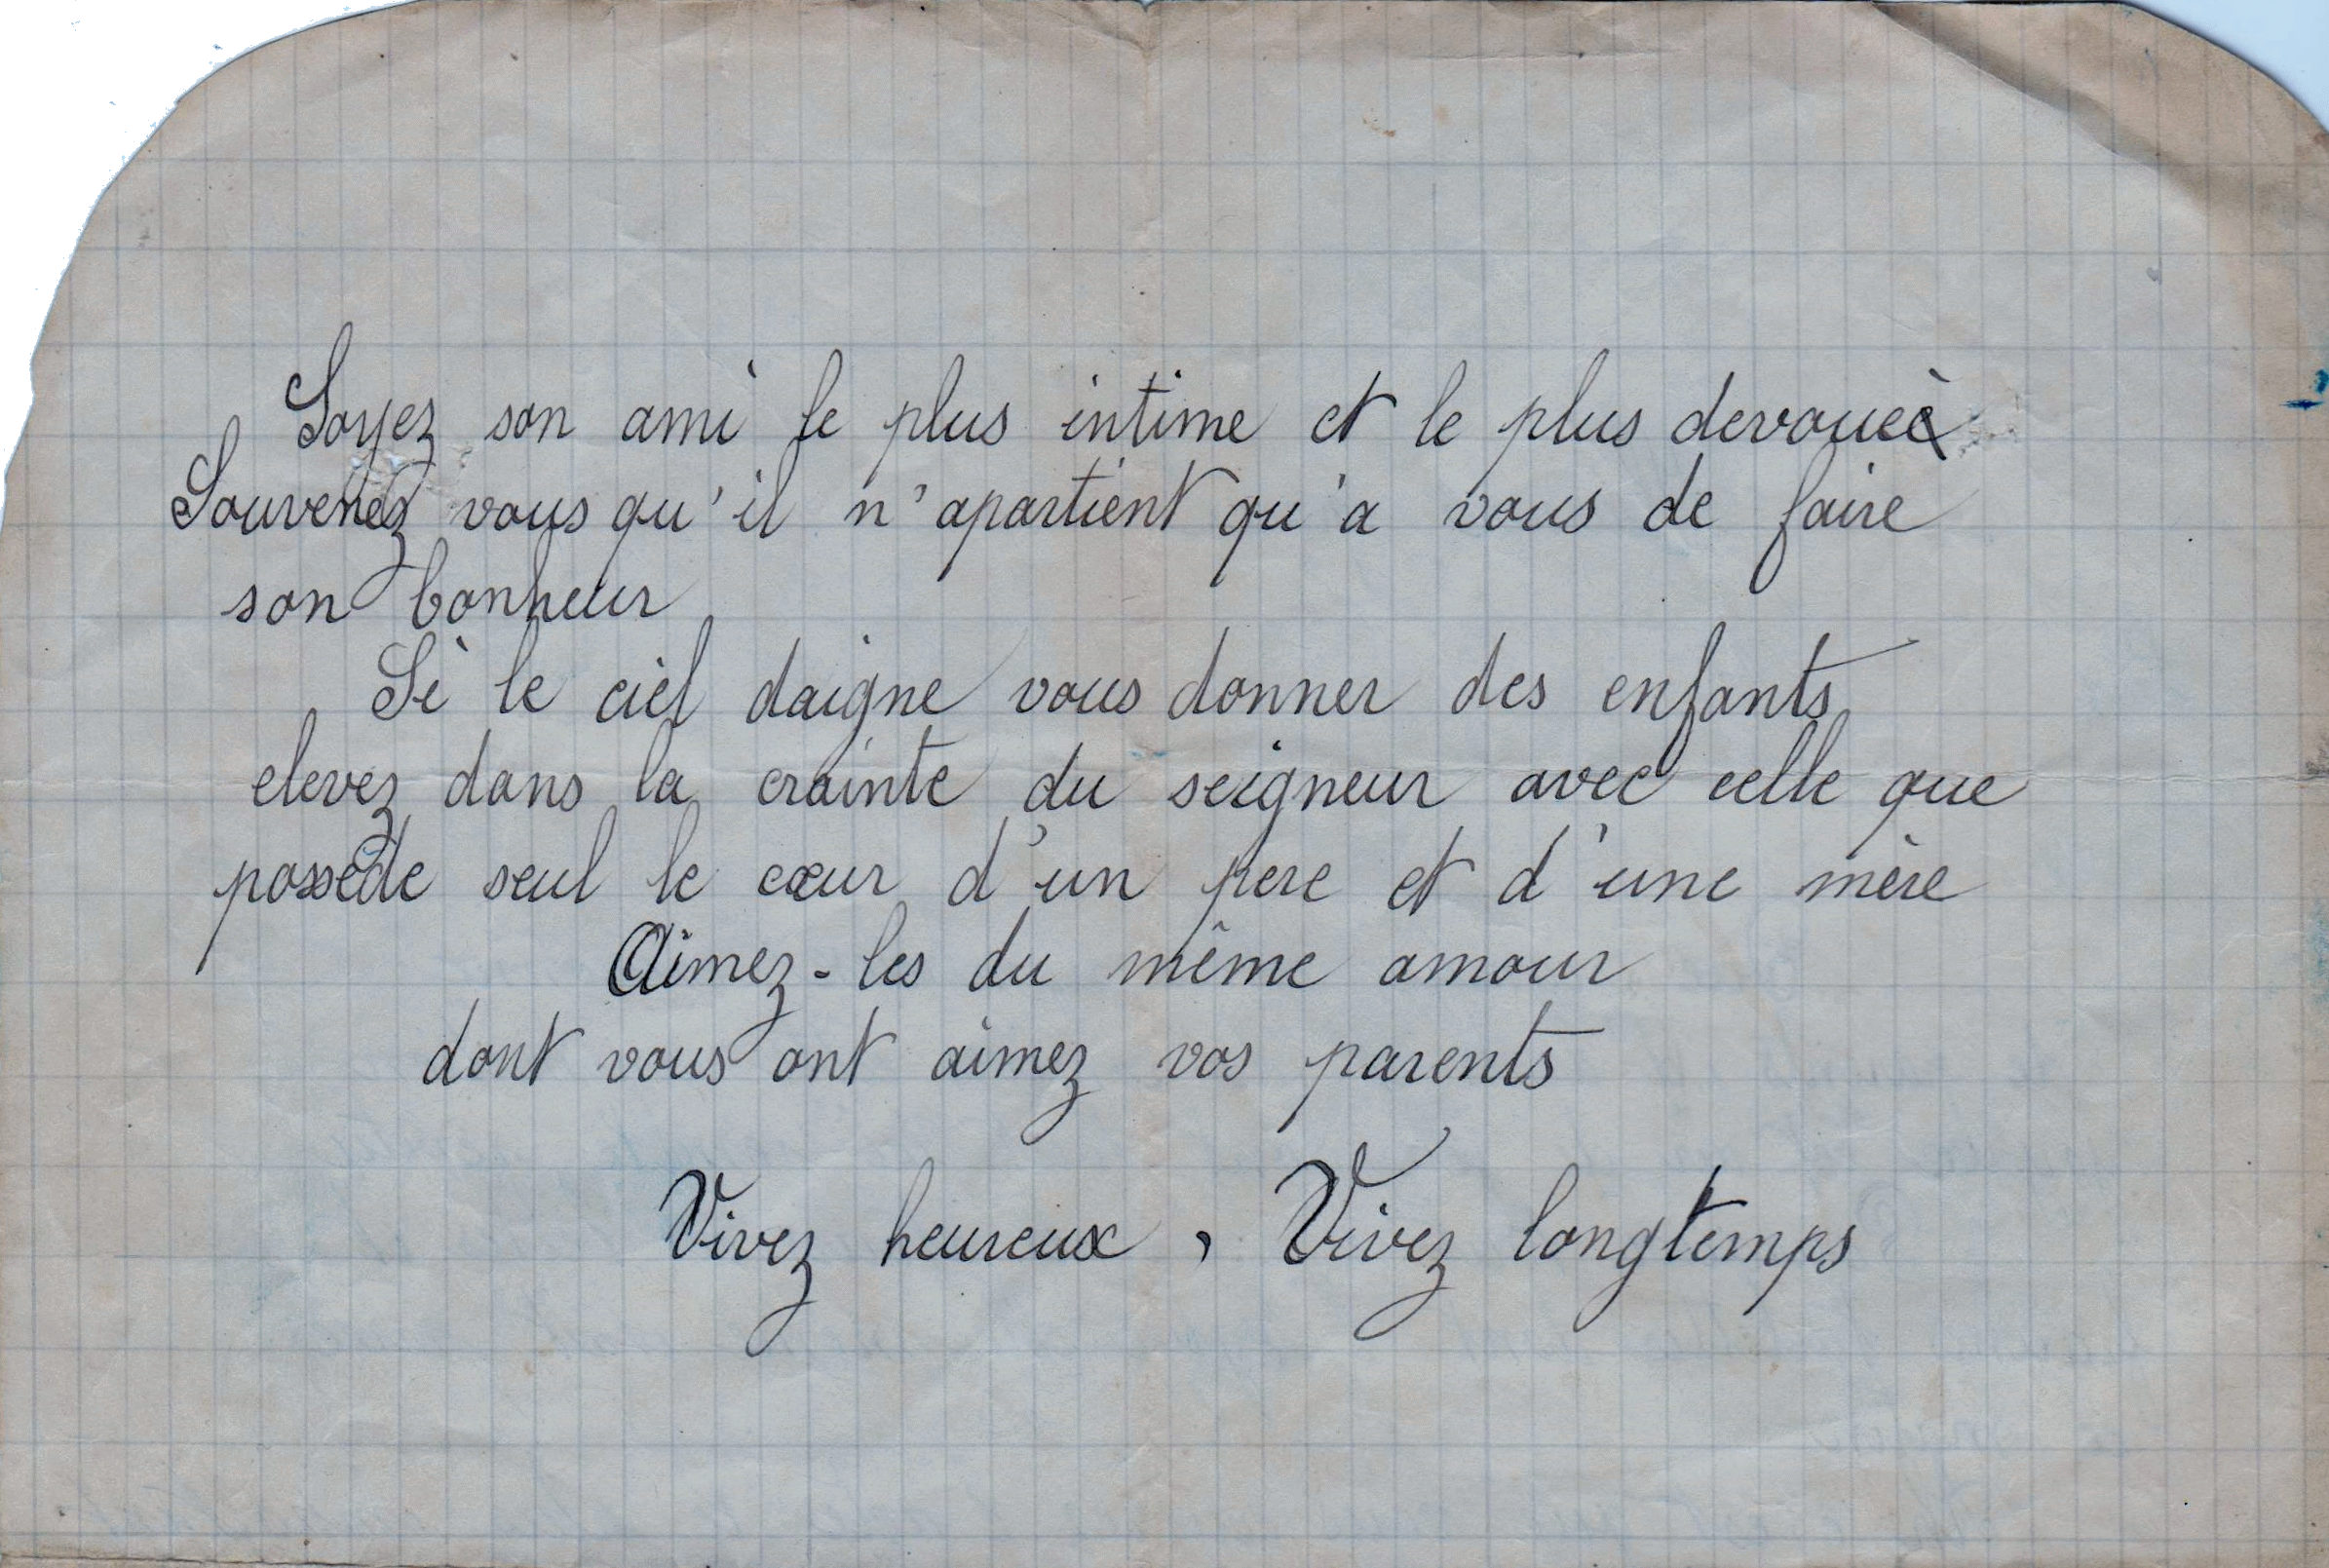 Soyez son ami le plus intime et le plus devoueè
Souvenez vous qu'il n'apartient qu'a vous de faire
son bonheur
Si le ciel daigne vous donner des enfants
elevez dans la crainte du seigneur avec celle que
possède seul le cœur d'un pere et d'une mère
Aimez-les du même amour
dont vous ont aimez vos parents
Vivez heureux, Vivez longtemps